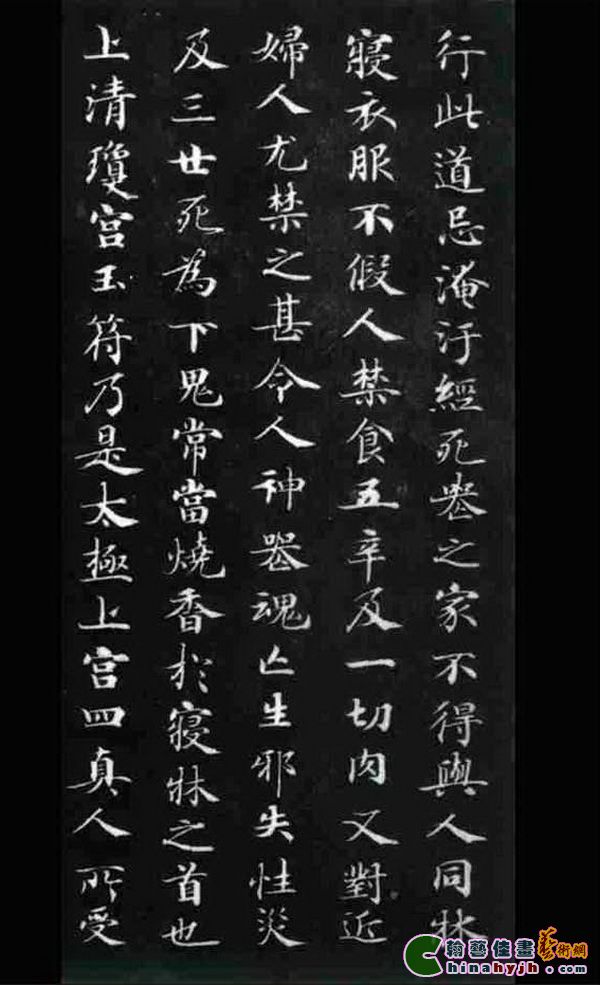 行此道忌淹汙經死䘮之家不得與人同牀
寢衣服不假人禁食五辛及一切肉又對近
婦人尤禁之甚令人神䘮魂亡生邪失性災
及三世死為下鬼常當燒香於寢牀之首也
上清瓊宮玉符乃是太極上宮四真人所受
翰藝佳畫藝術網
Chinahyjh.com